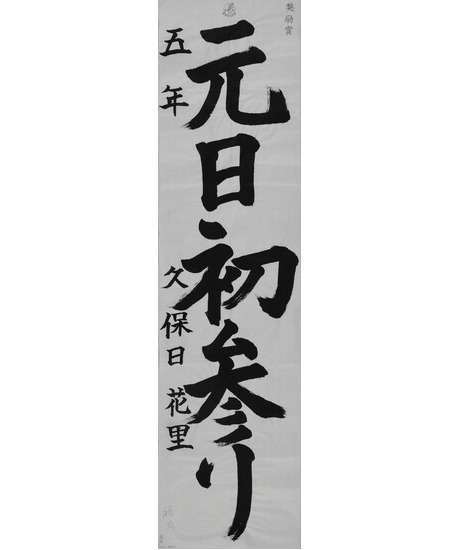 奨励賞
元日初参り
五年 久保日花里